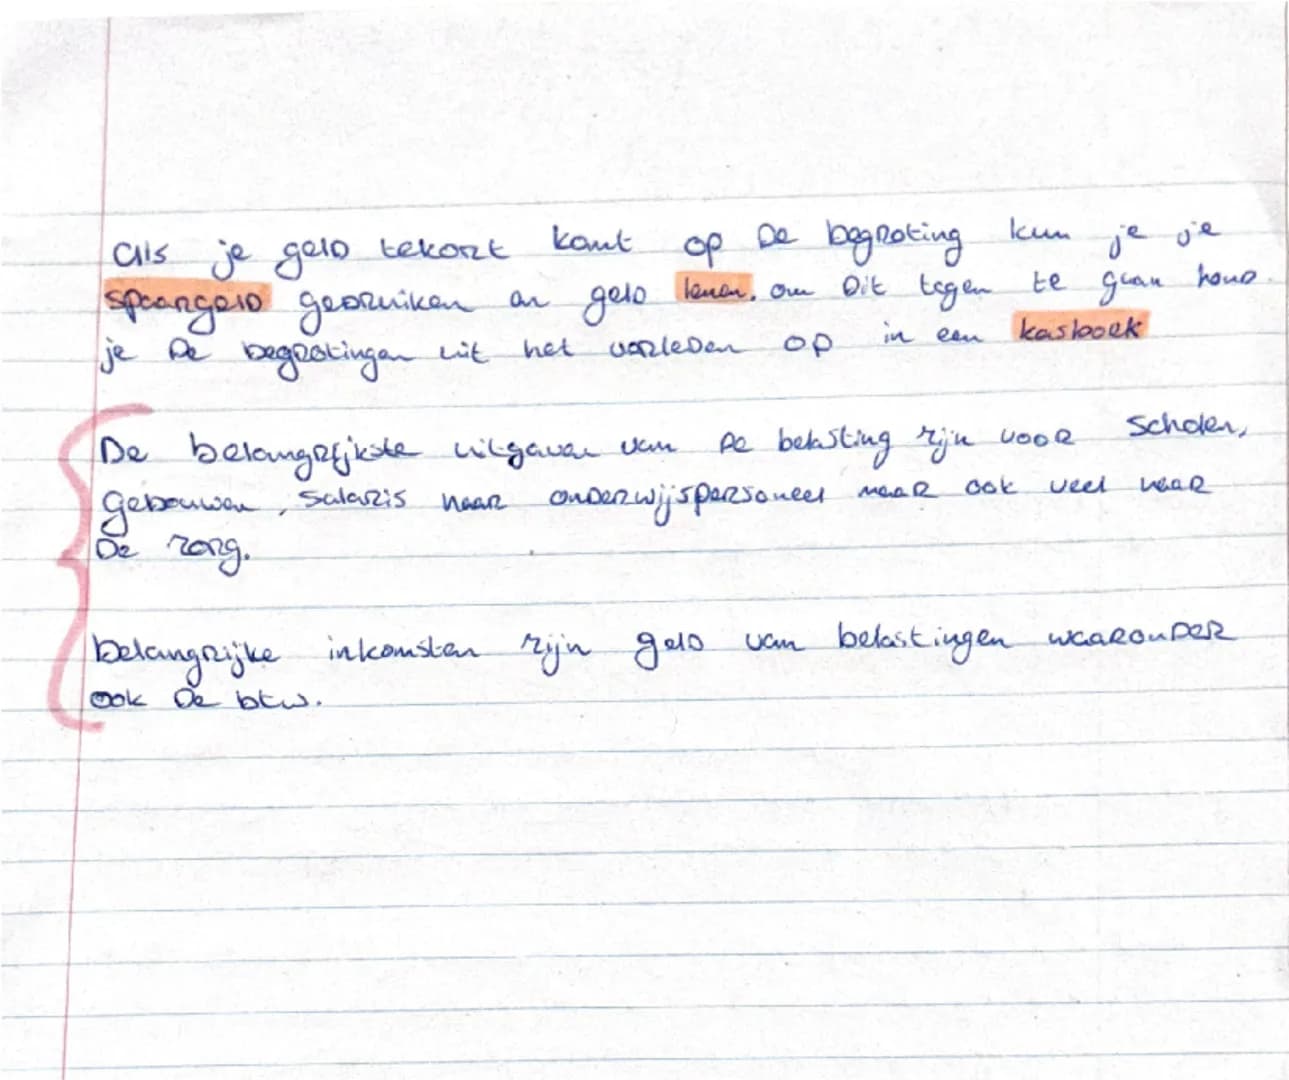 Als je geld tekort komt op de begroting kun je je
spaargeld gebruiken en geld lenen. om dit tegen te gaan houd
je de begrotingen uit het verleden op in een kasboek
De belangrijkste uitgaven van de belasting zijn voor Scholen,
gebouwen, salaris naar onderwijspersoneel maar ook veel naar
De zorg.
belangrijke inkomsten zijn geld van belastingen waaronder
ook de btw.